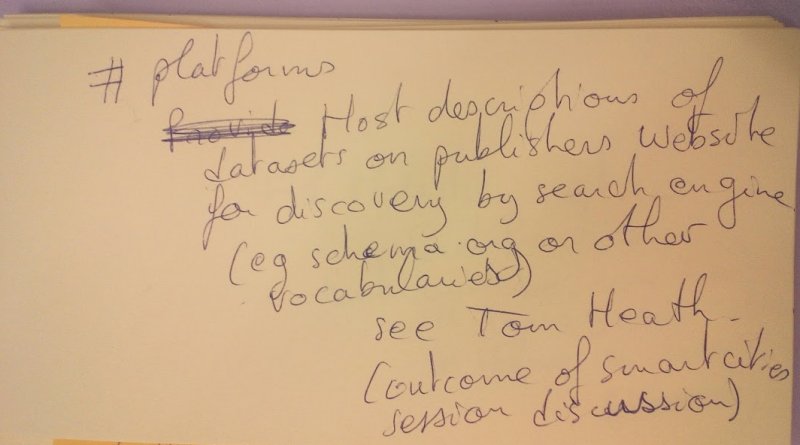 # platforms
Provide Host descriptions of
datasets on publishers website
for discovery by search engine
(eg schema.org or other
vocabularies)
see Tom Heath -
(outcome of smart cities
session discussion)